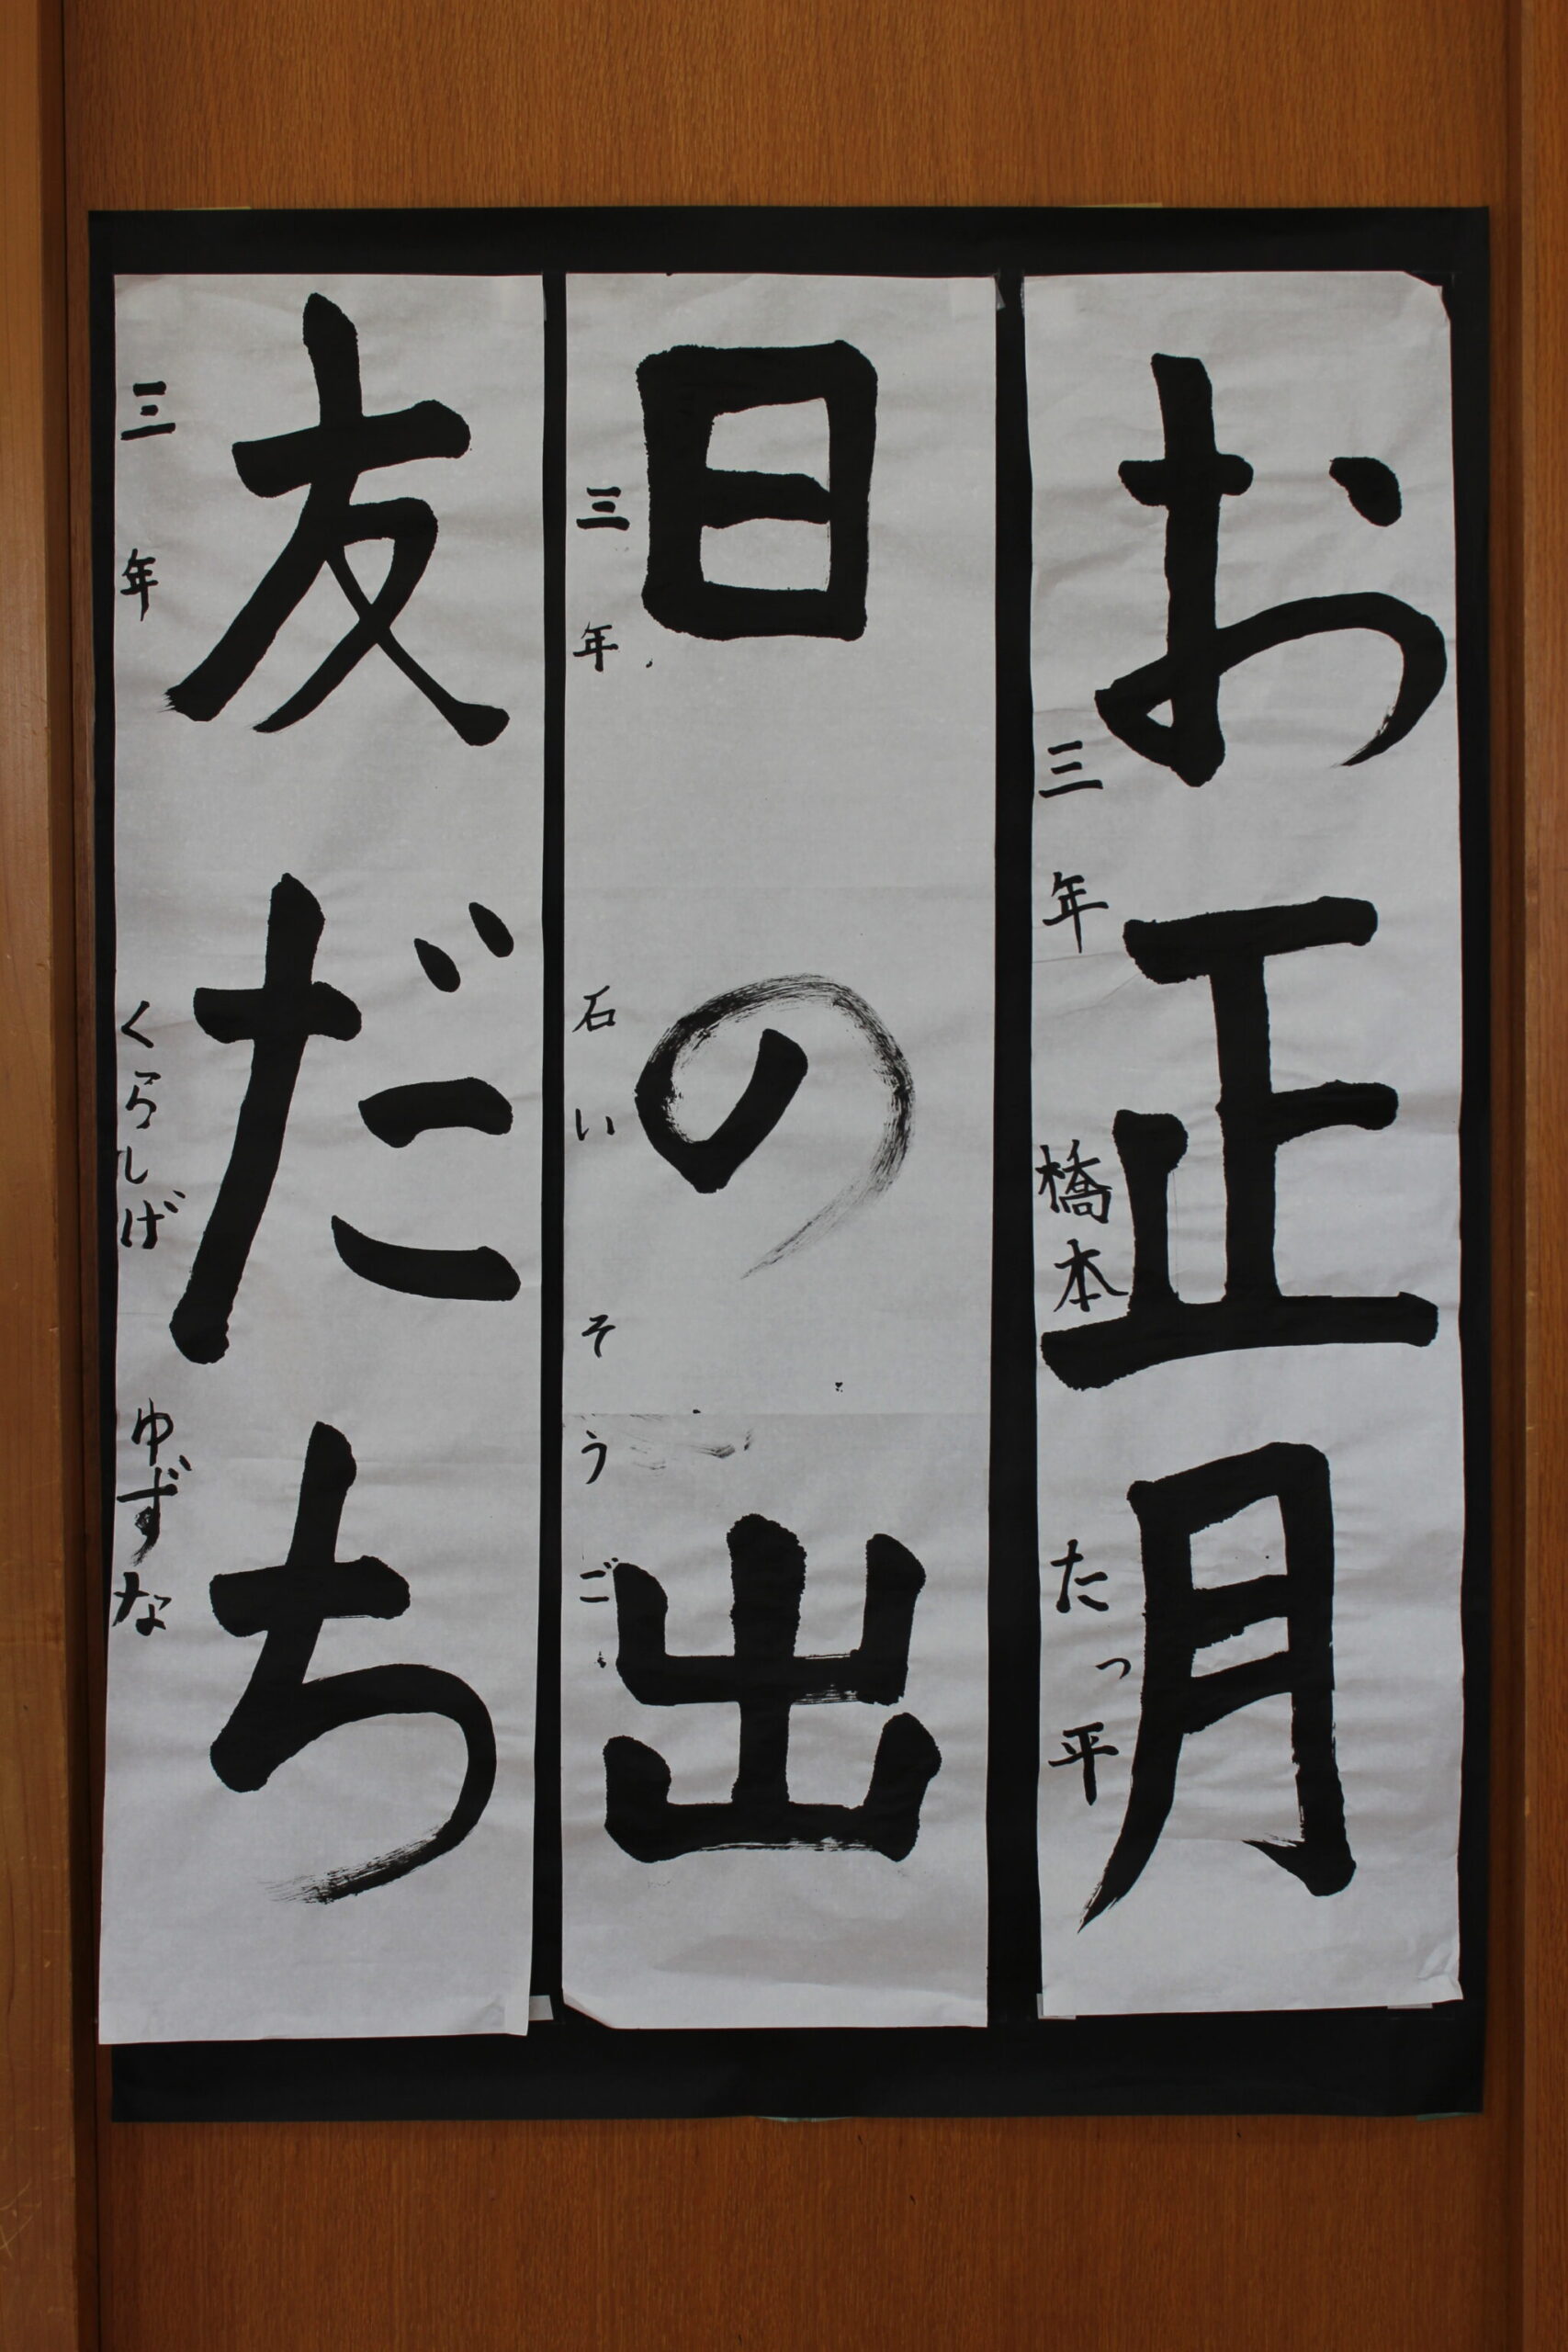 お正月
三年 橋本 たっ平
日の出
三年 石い そうご
友だち
三年 くらしげ ゆずな